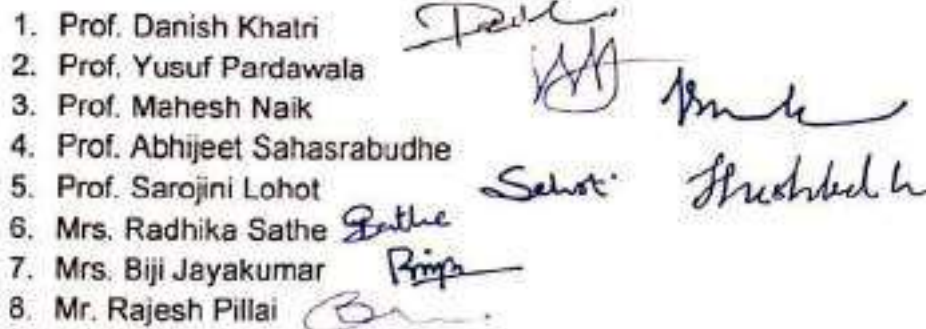 1. Prof. Danish Khatri
2. Prof. Yusuf Pardawala
3. Prof. Mahesh Naik
4. Prof. Abhijeet Sahasrabudhe
5. Prof. Sarojini Lohot
6. Mrs. Radhika Sathe Sathe
7. Mrs. Biji Jayakumar
8. Mr. Rajesh Pillai